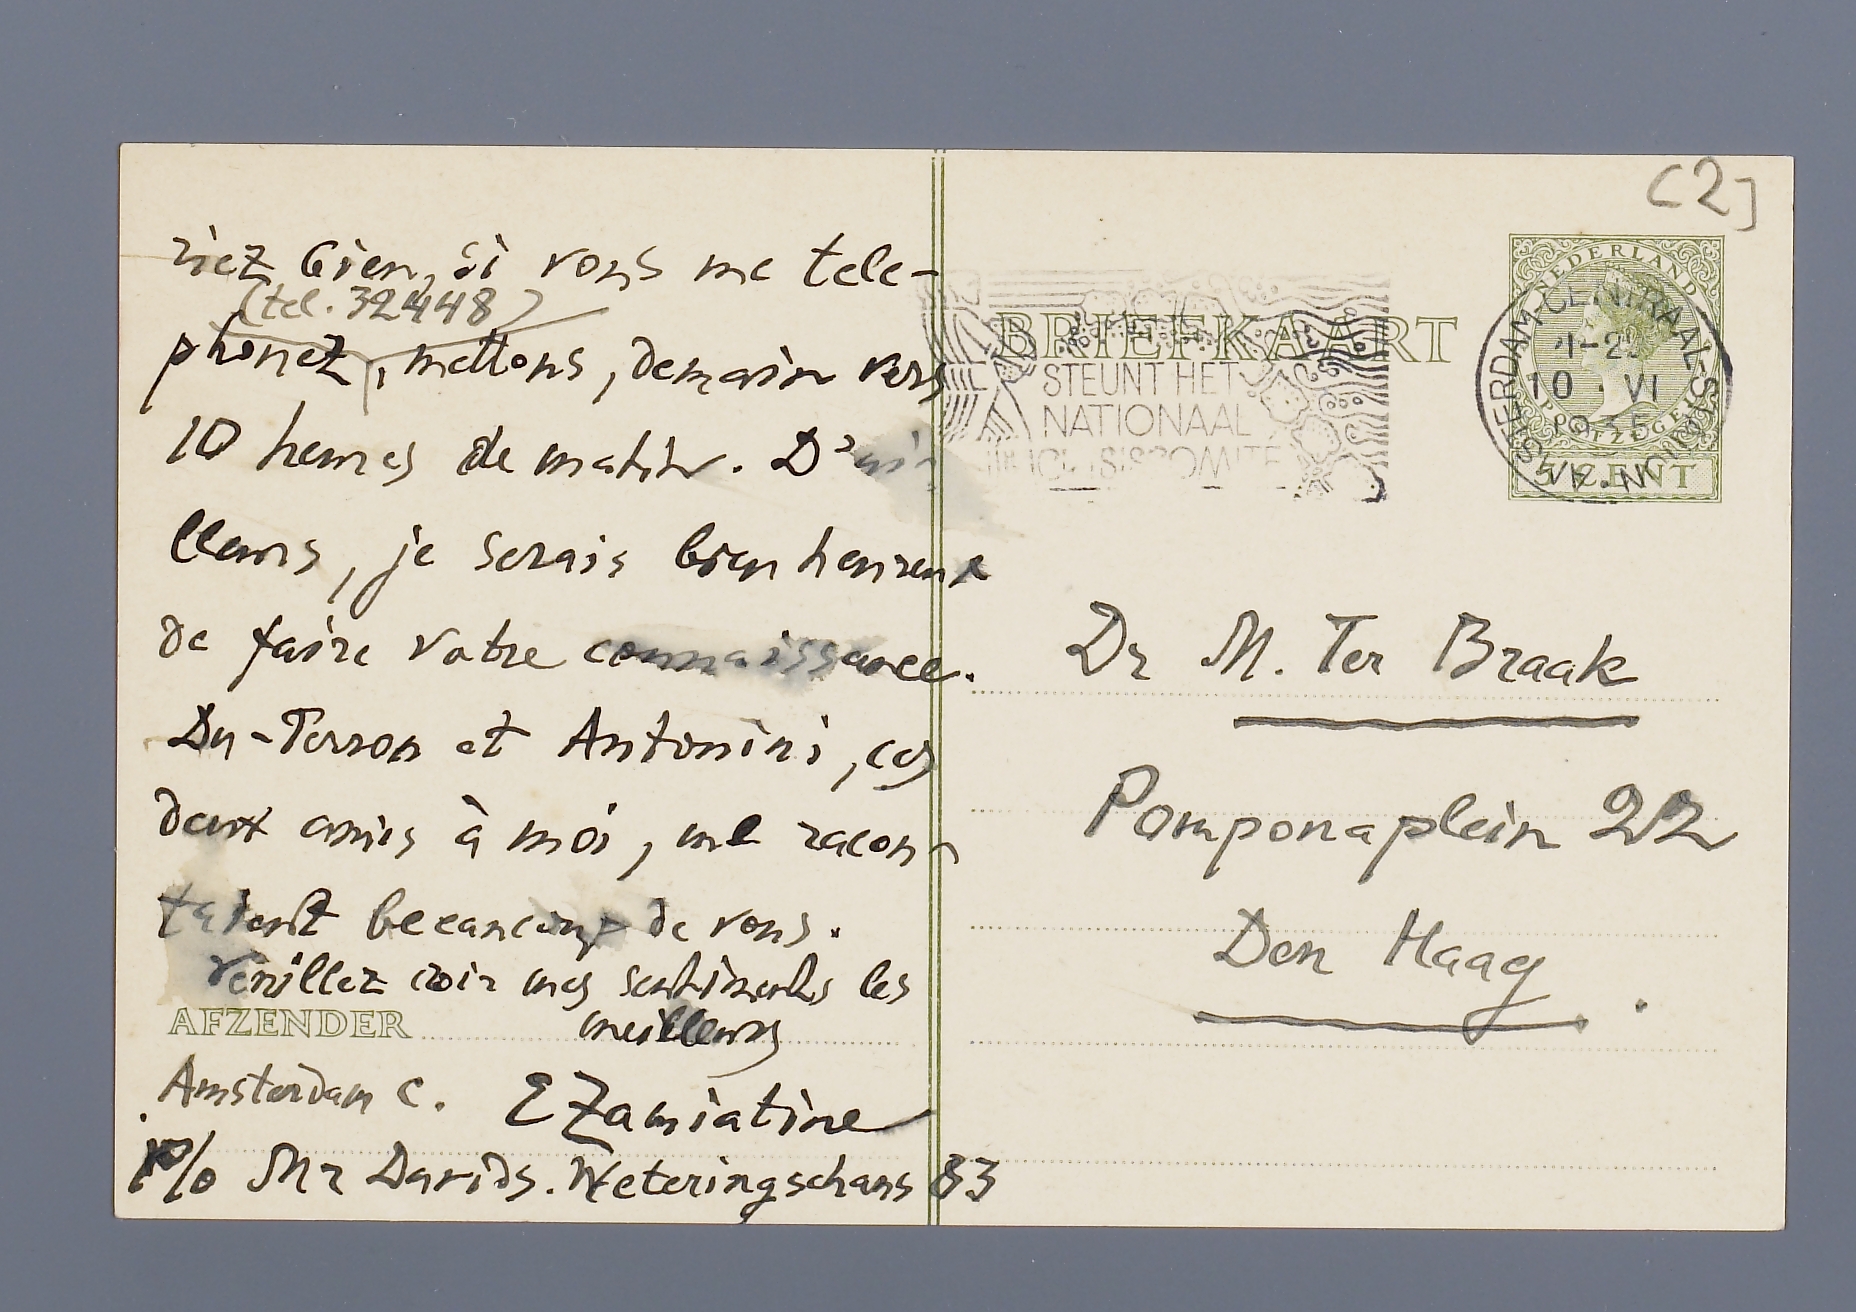 riez bien, si vous me tele-
(tel. 32448)
phonez, mettons, demain vers
10 heures de matin. D'ai
lleurs, je serais bien heureux
de faire votre connaissance.
Du-Perron et Antonini, ces
deux amis à moi, me racon-
taient beeaucoup de vous.
Veuillez croir mes sentiments les
meilleurs
AFZENDER
Amsterdam C. E Zamiatine
P/o Mr Davids. Weteringschans 83
[2]
NEDERLAND
POSTZEGEL
5 CENT
BRIEFKAART
STEUNT HET
NATIONAAL
CRISISCOMITE
AMSTERDAM-CENTRAAL-STATION
10 · VI
1935
Dr M. Ter Braak
Pomponaplein 22
Den Haag.